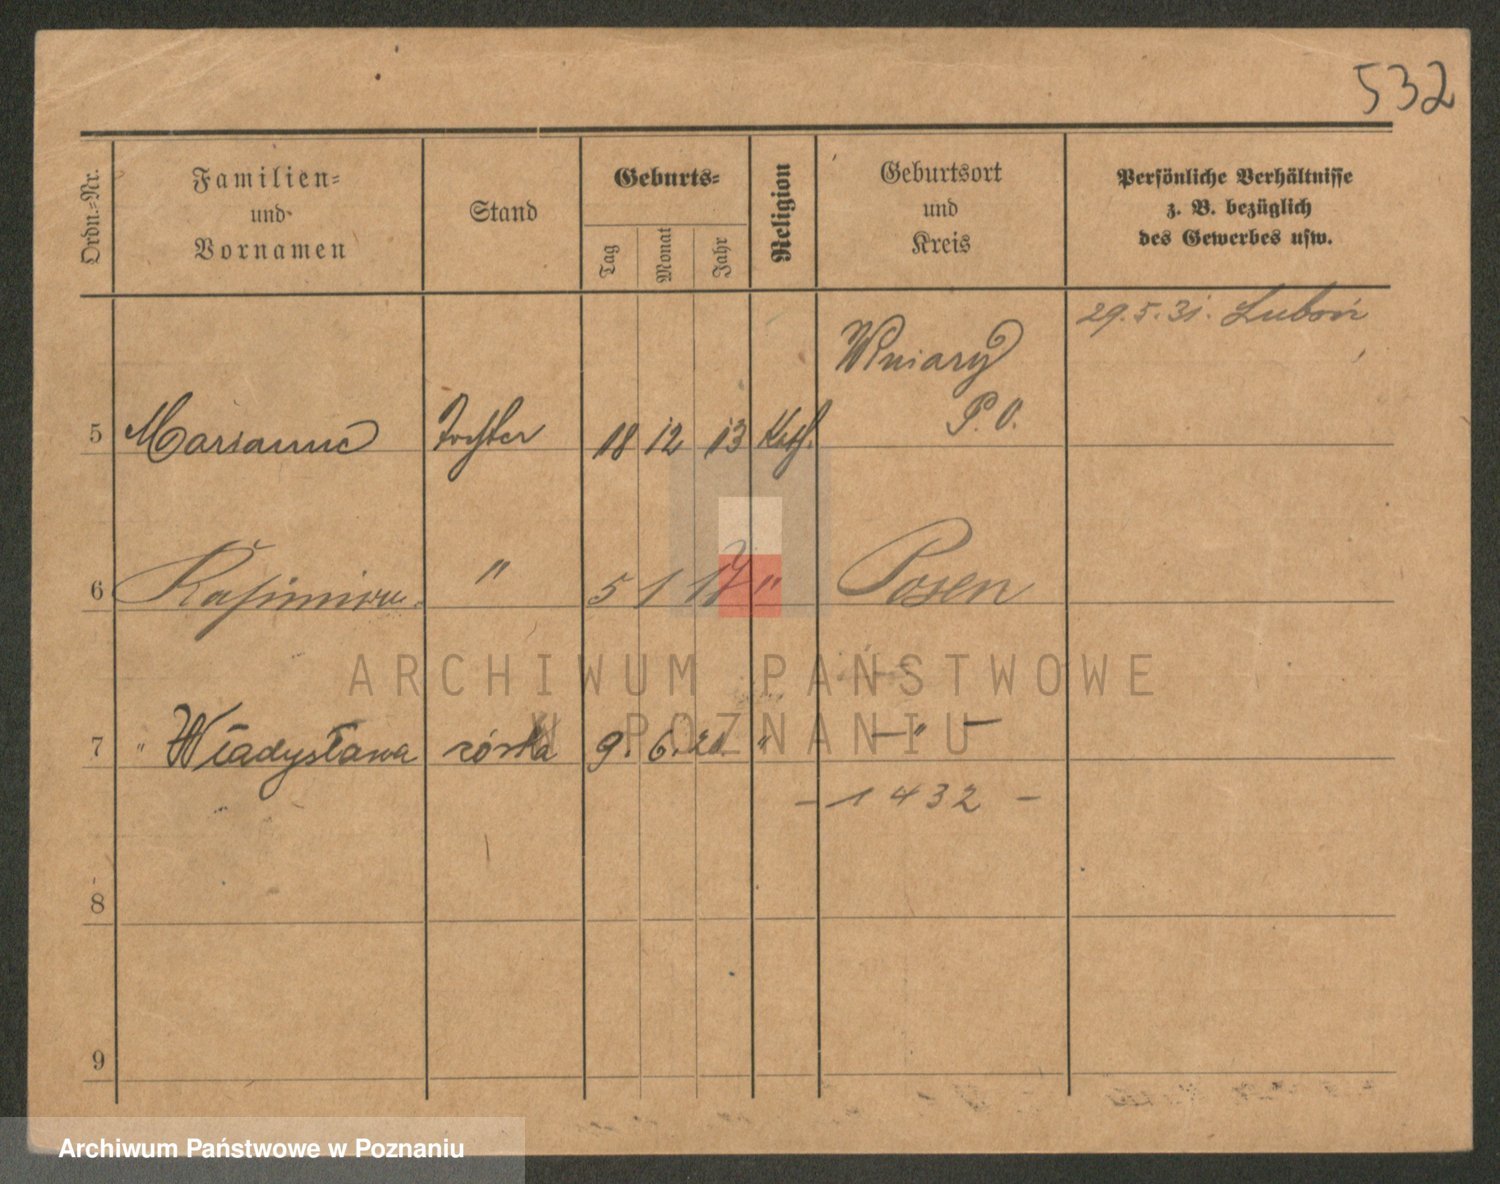 532
Ordn.-Nr. Familien- und Vornamen Stand Geburts- Tag Monat Jahr Religion Geburtsort und Kreis Persönliche Verhältnisse z. B. bezüglich des Gewerbes usw.
29.5.31. Luboń
Winiary
5 Marianne Tochter 18 12 13 Kath. P. O.
6 Kasimira " 5 1 17 " Posen
ARCHIWUM PAŃSTWOWE
W POZNANIU
7 " Władysława córka 9. 6. " — " —
– 1432 –
8
9
Archiwum Państwowe w Poznaniu